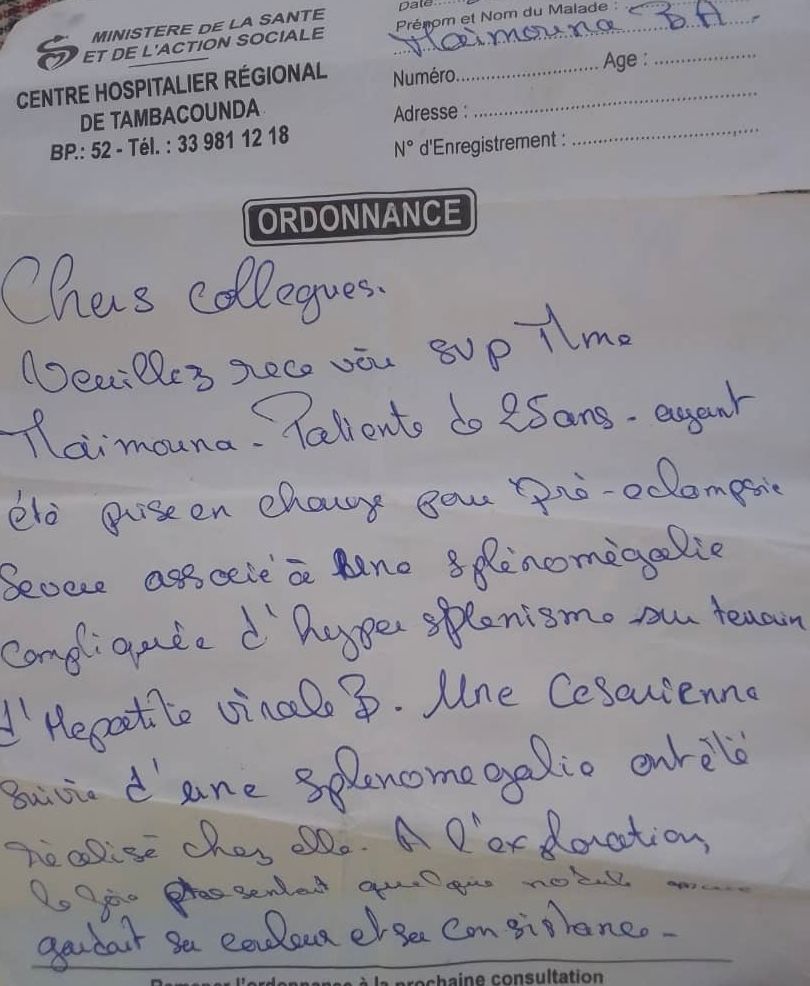 MINISTERE DE LA SANTE
ET DE L'ACTION SOCIALE
CENTRE HOSPITALIER RÉGIONAL
DE TAMBACOUNDA
BP.: 52 - Tél. : 33 981 12 18
Date
Prénom et Nom du Malade :
Maimouna BA.
Numéro.............................. Age : ...................
Adresse : ..................................................
N° d'Enregistrement : ..................................
ORDONNANCE
Chers collegues.
Veuillez recevoir svp Mme
Maimouna - Patiente de 25ans - ayant
été prise en charge pour Pré-eclampsie
Severe associé à une splénomégalie
compliquée d'hypersplenisme sur terrain
d'Hepatite virale B. Une Cesarienne
suivie d'une splenomegalie ont été
réalisé chez elle. A l'exploration,
le foie presentait quelque
gardait sa couleur et sa consistance -
l'ordonnance à la prochaine consultation